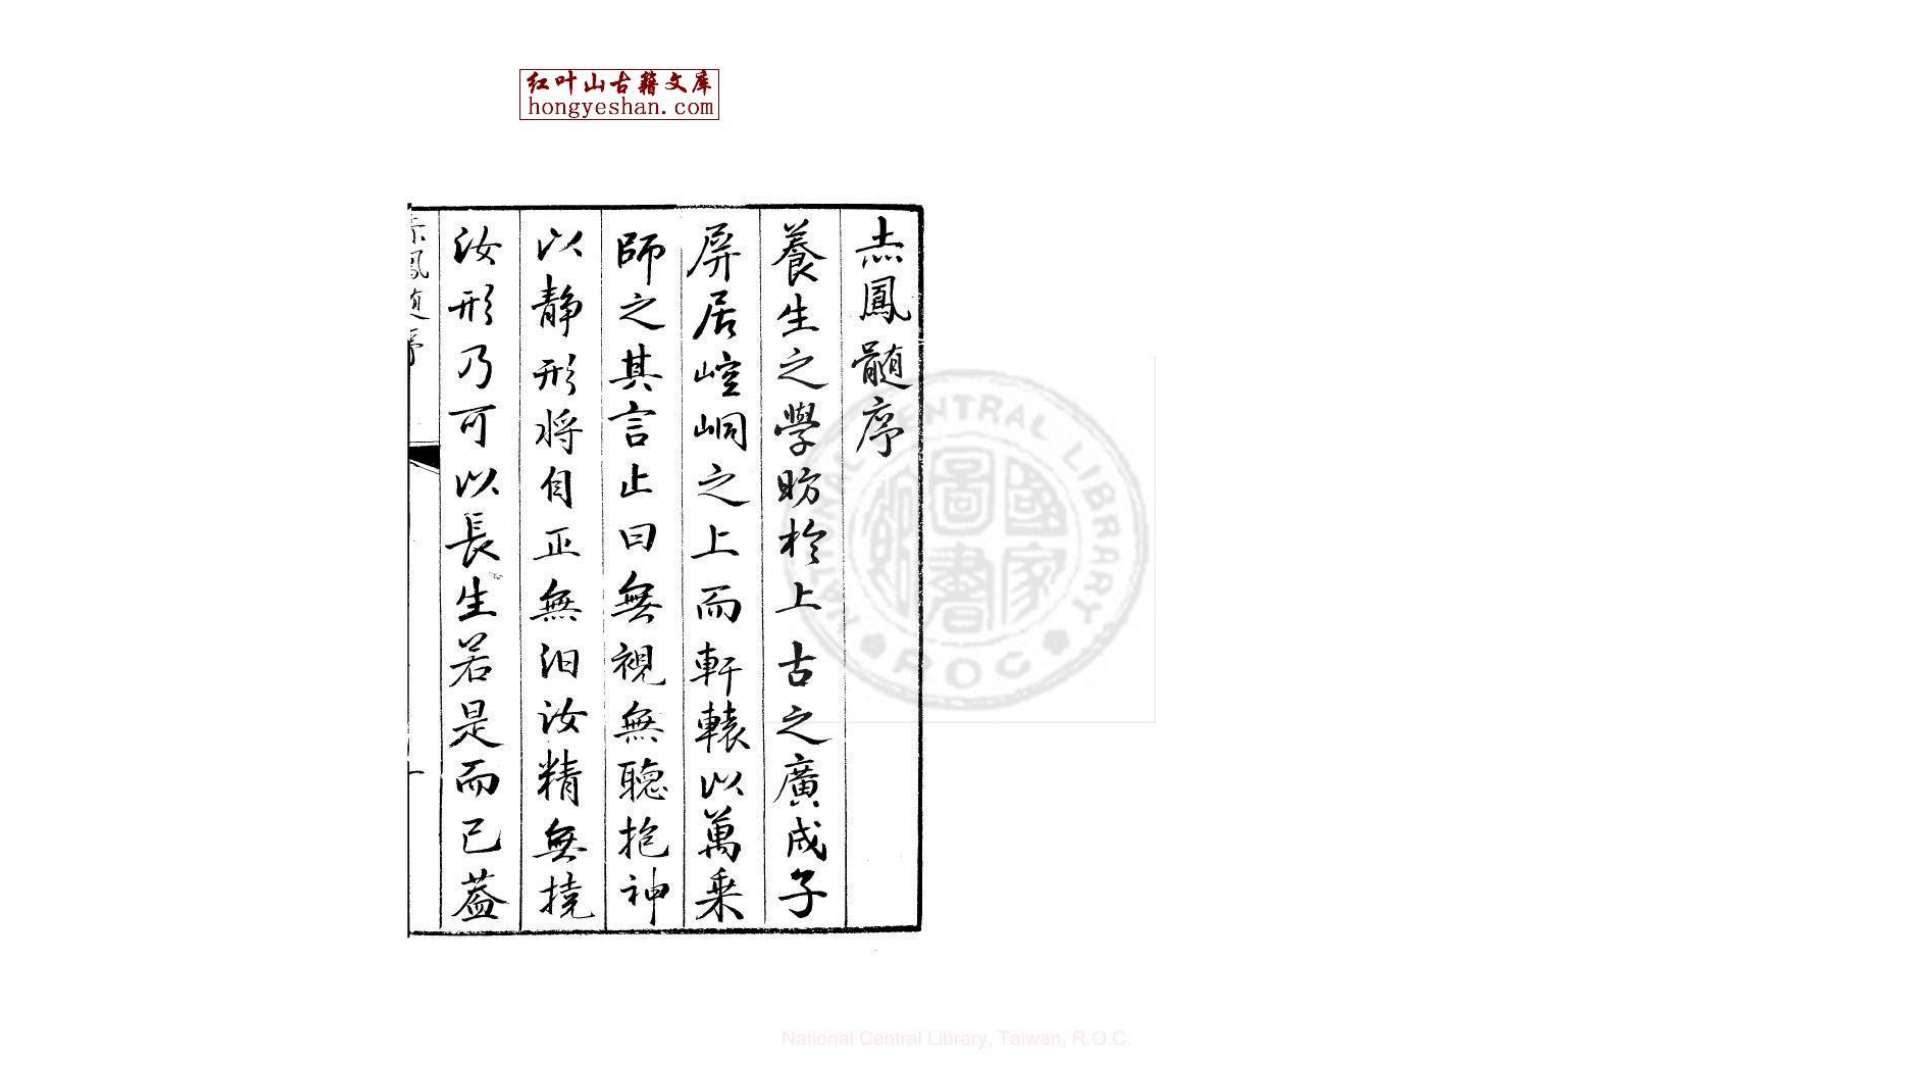 红叶山古籍文库
hongyeshan.com
赤鳳髓序
養生之學昉於上古之廣成子
屏居崆峒之上而軒轅以萬乘
師之其言止曰無視無聽抱神
以静形將自正無汨汝精無撓
汝形乃可以長生若是而已葢
NATIONAL CENTRAL LIBRARY
ROC
國家圖書館
National Central Library, Taiwan, R.O.C.